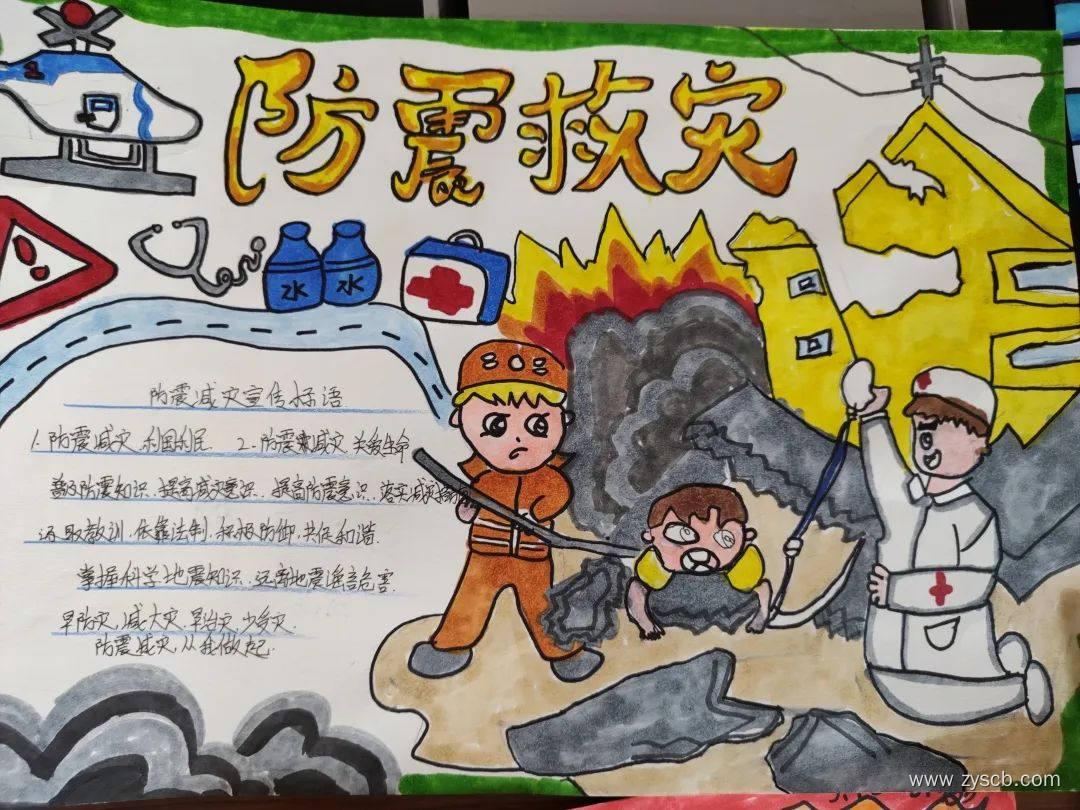 防震救灾
水 水
防震减灾宣传标语
1. 防震减灾,利国利民. 2. 防震减灾 关爱生命
普及防震知识.提高减灾意识.提高防震意识.落实减灾
汲取教训.依靠法制.积极防御.共促和谐.
掌握科学地震知识.远离地震谣言危害.
早防灾.减大灾.早治灾.少受灾.
防震减灾,从我做起.
www.zyscb.com